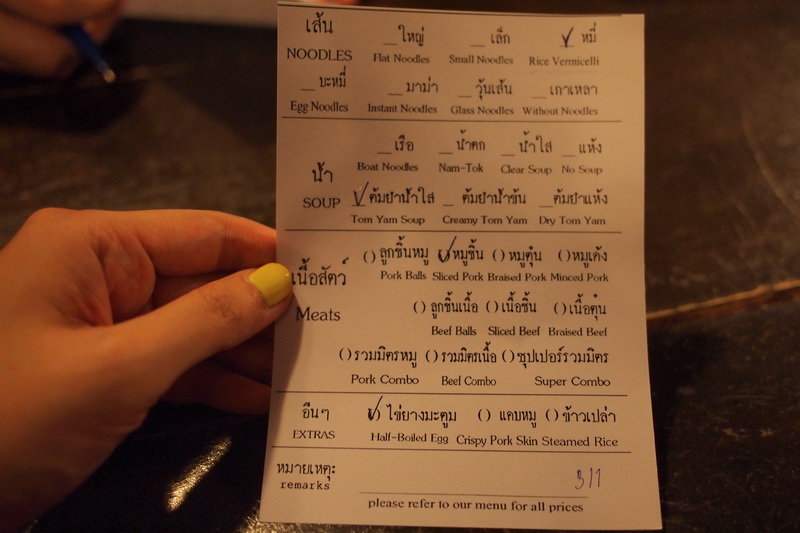 เส้น __ใหญ่ __เล็ก √ หมี่
NOODLES Flat Noodles Small Noodles Rice Vermicelli
__บะหมี่ __มาม่า __วุ้นเส้น __เกาเหลา
Egg Noodles Instant Noodles Glass Noodles Without Noodles
__เรือ __น้ำตก __น้ำใส __แห้ง
Boat Noodles Nam-Tok Clear Soup No Soup
น้ำ
SOUP √ต้มยำน้ำใส __ต้มยำน้ำข้น __ต้มยำแห้ง
Tom Yam Soup Creamy Tom Yam Dry Tom Yam
()ลูกชิ้นหมู (√)หมูชิ้น ()หมูตุ๋น ()หมูเด้ง
เนื้อสัตว์ Pork Balls Sliced Pork Braised Pork Minced Pork
Meats ()ลูกชิ้นเนื้อ ()เนื้อชิ้น ()เนื้อตุ๋น
Beef Balls Sliced Beef Braised Beef
()รวมมิตรหมู ()รวมมิตรเนื้อ ()ซุปเปอร์รวมมิตร
Pork Combo Beef Combo Super Combo
อื่นๆ (√)ไข่ยางมะตูม () แคบหมู ()ข้าวเปล่า
EXTRAS Half-Boiled Egg Crispy Pork Skin Steamed Rice
หมายเหตุ:
remarks 311
please refer to our menu for all prices